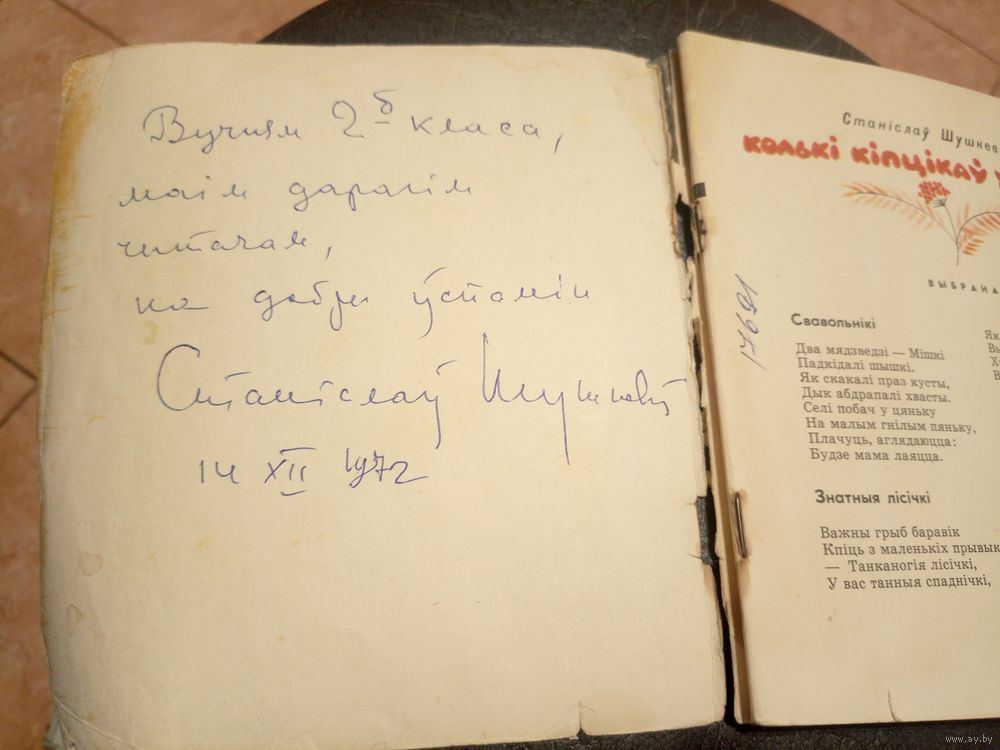 Вучням 2б класа,
маім дарагім
чытачам,
на добры ўспамін
Станіслаў Шушкевіч
14 XII 1972
17691
Станіслаў Шушкев
КОЛЬКІ КІПЦІКАЎ У
ВЫБРАНА
Свавольнікі
Два мядзведзі — Мішкі
Падкідалі шышкі.
Як скакалі праз кусты,
Дык абдрапалі хвасты.
Селі побач у цяньку
На малым гнілым пяньку,
Плачуць, аглядаюцца:
Будзе мама лаяцца.
Як
Вы
Х
В
Знатныя лісічкі
Важны грыб баравік
Кпіць з маленькіх прывык
— Танканогія лісічкі,
У вас танныя спаднічкі,
www.ay.by